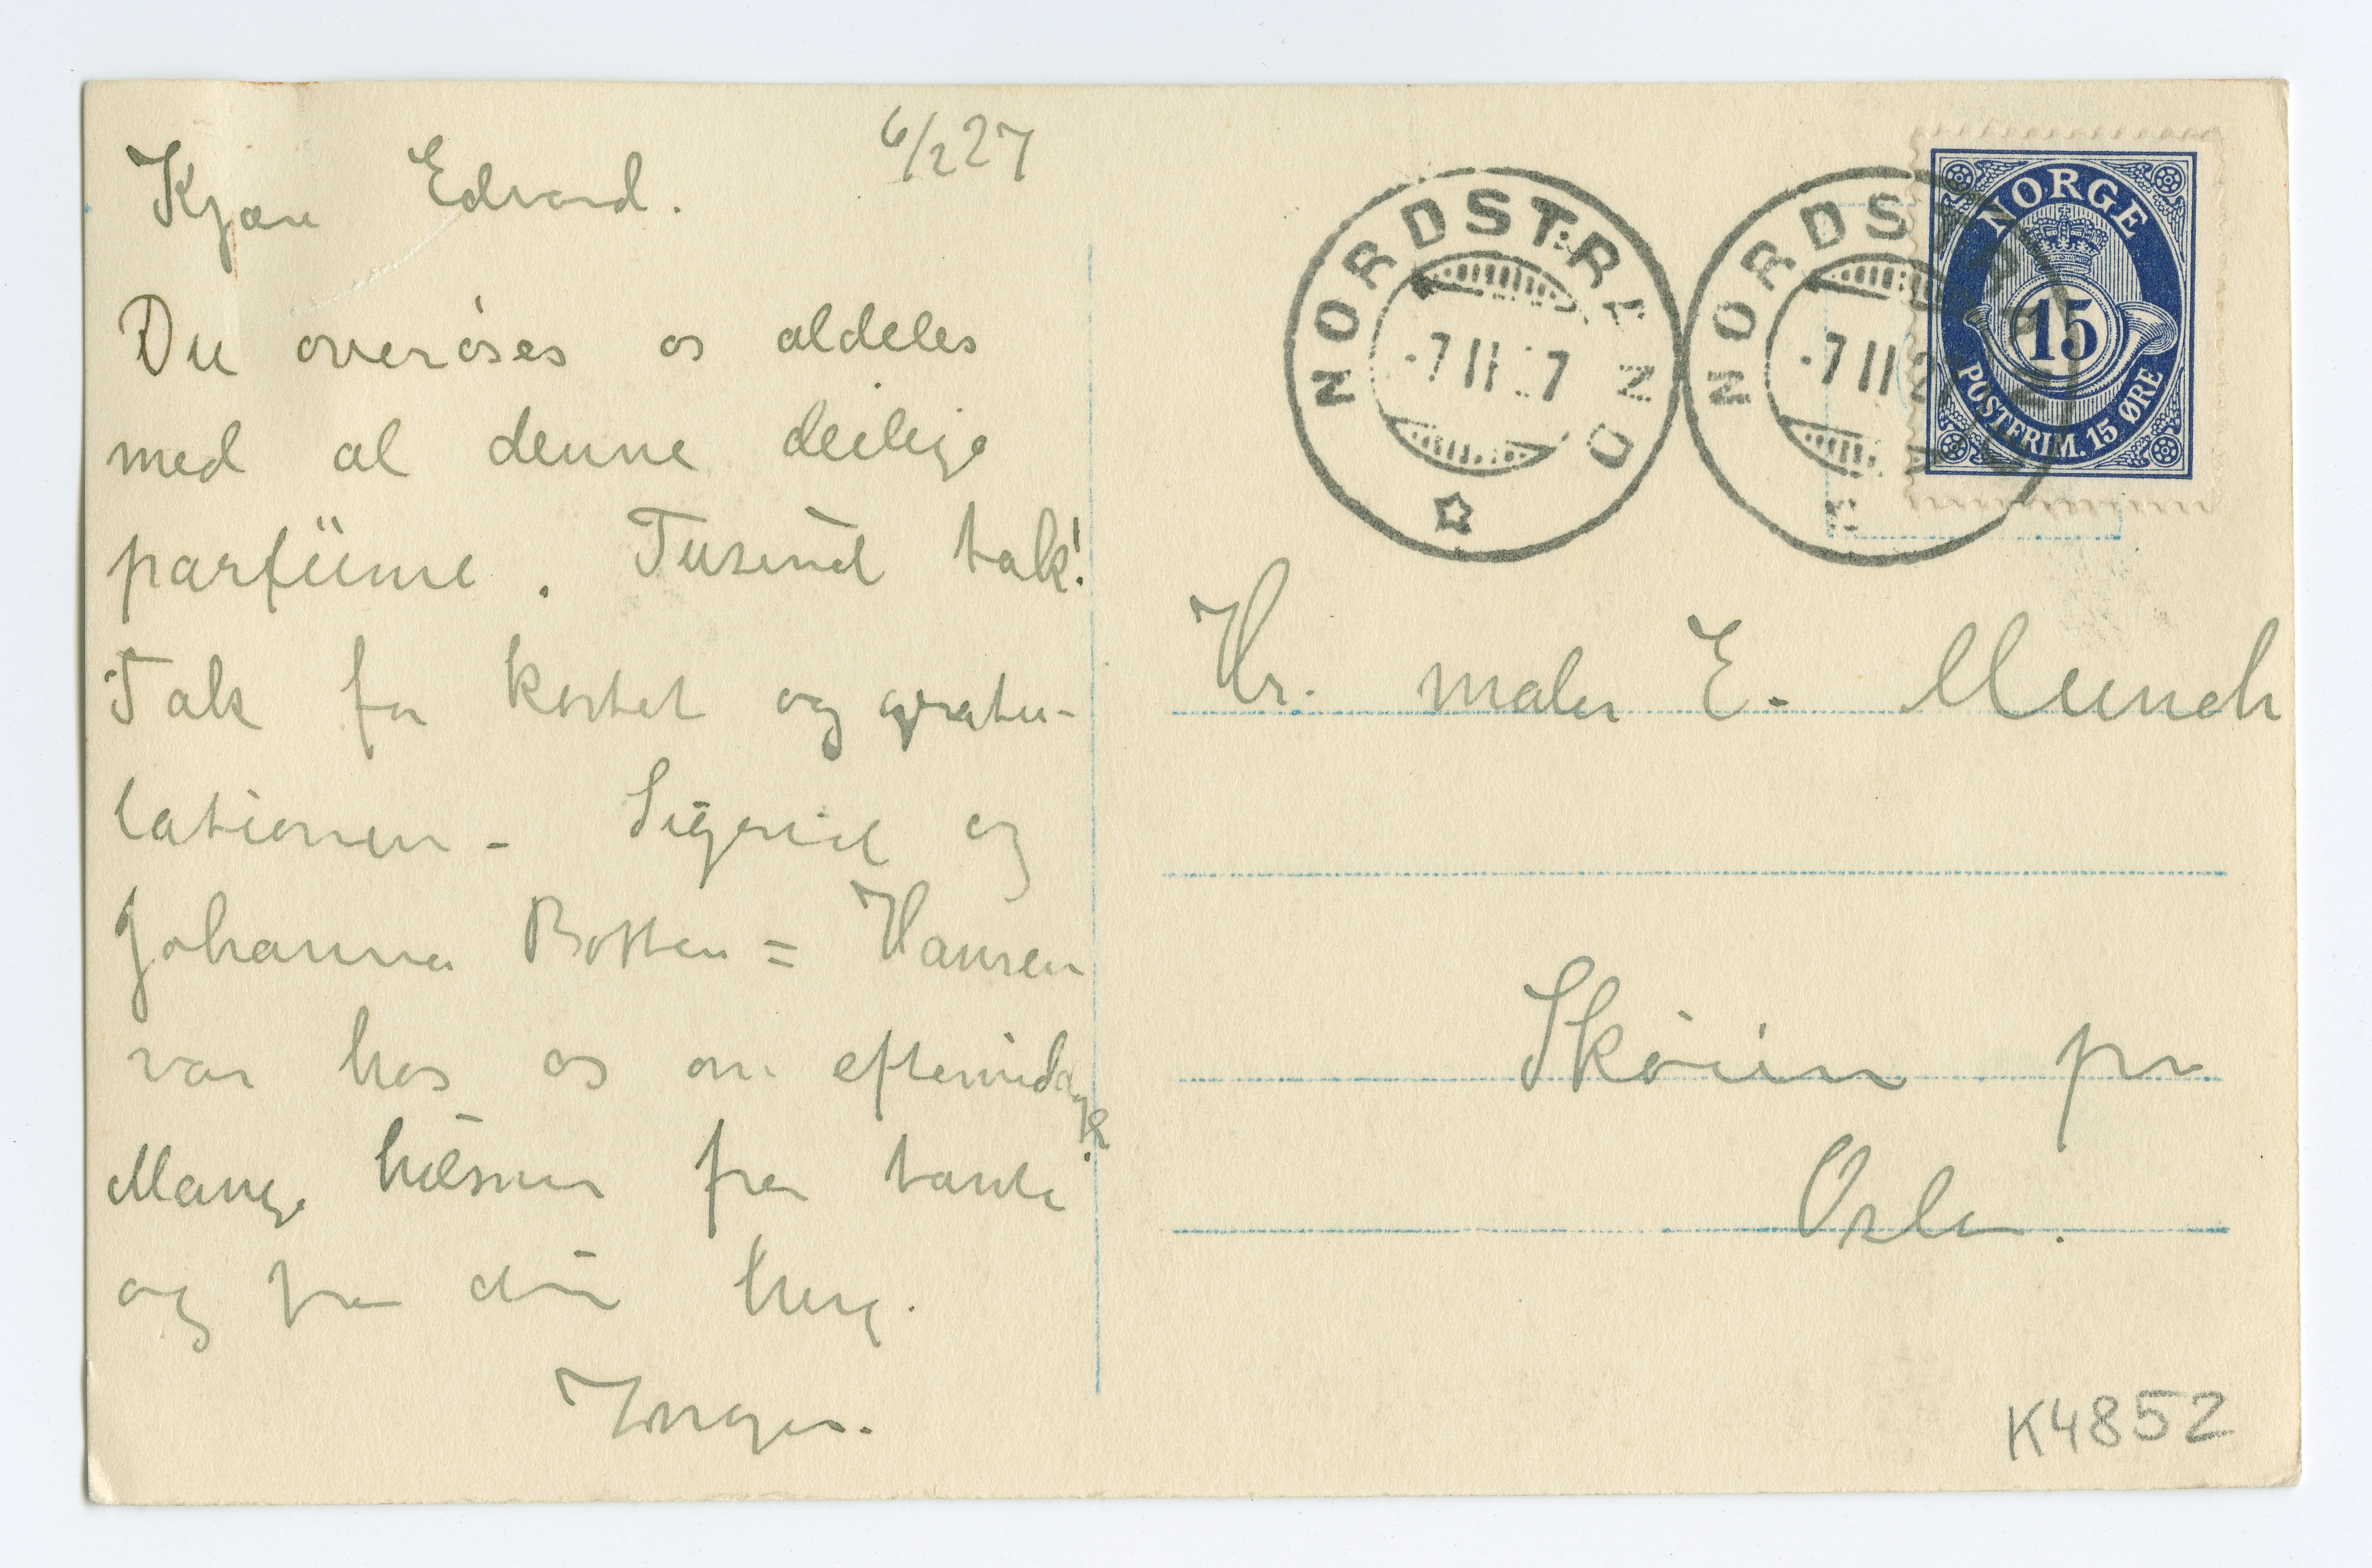 6/2 27
Kjære Edvard.
Du overøses os aldeles
med al denne deilige
parfüme. Tusind tak!
Tak for kortet og gratu-
lationen - Sigrid og
Johanna Botten = Hansen
var hos os om eftermidage
Mange hilsner fra tante
og fra din heng.
Inger.
NORDSTRAND
-7 II 27
NORDSTRAND
-7 II 2
NORGE
15
POSTFRIM. 15 ØRE
Hr. maler E. Munch
Skøien pr
Oslo.
K4852